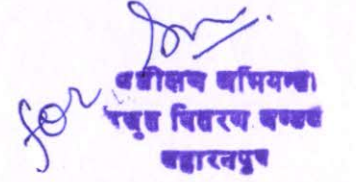 for
अधीक्षण अभियन्ता
विद्युत वितरण मण्डल
सहारनपुर